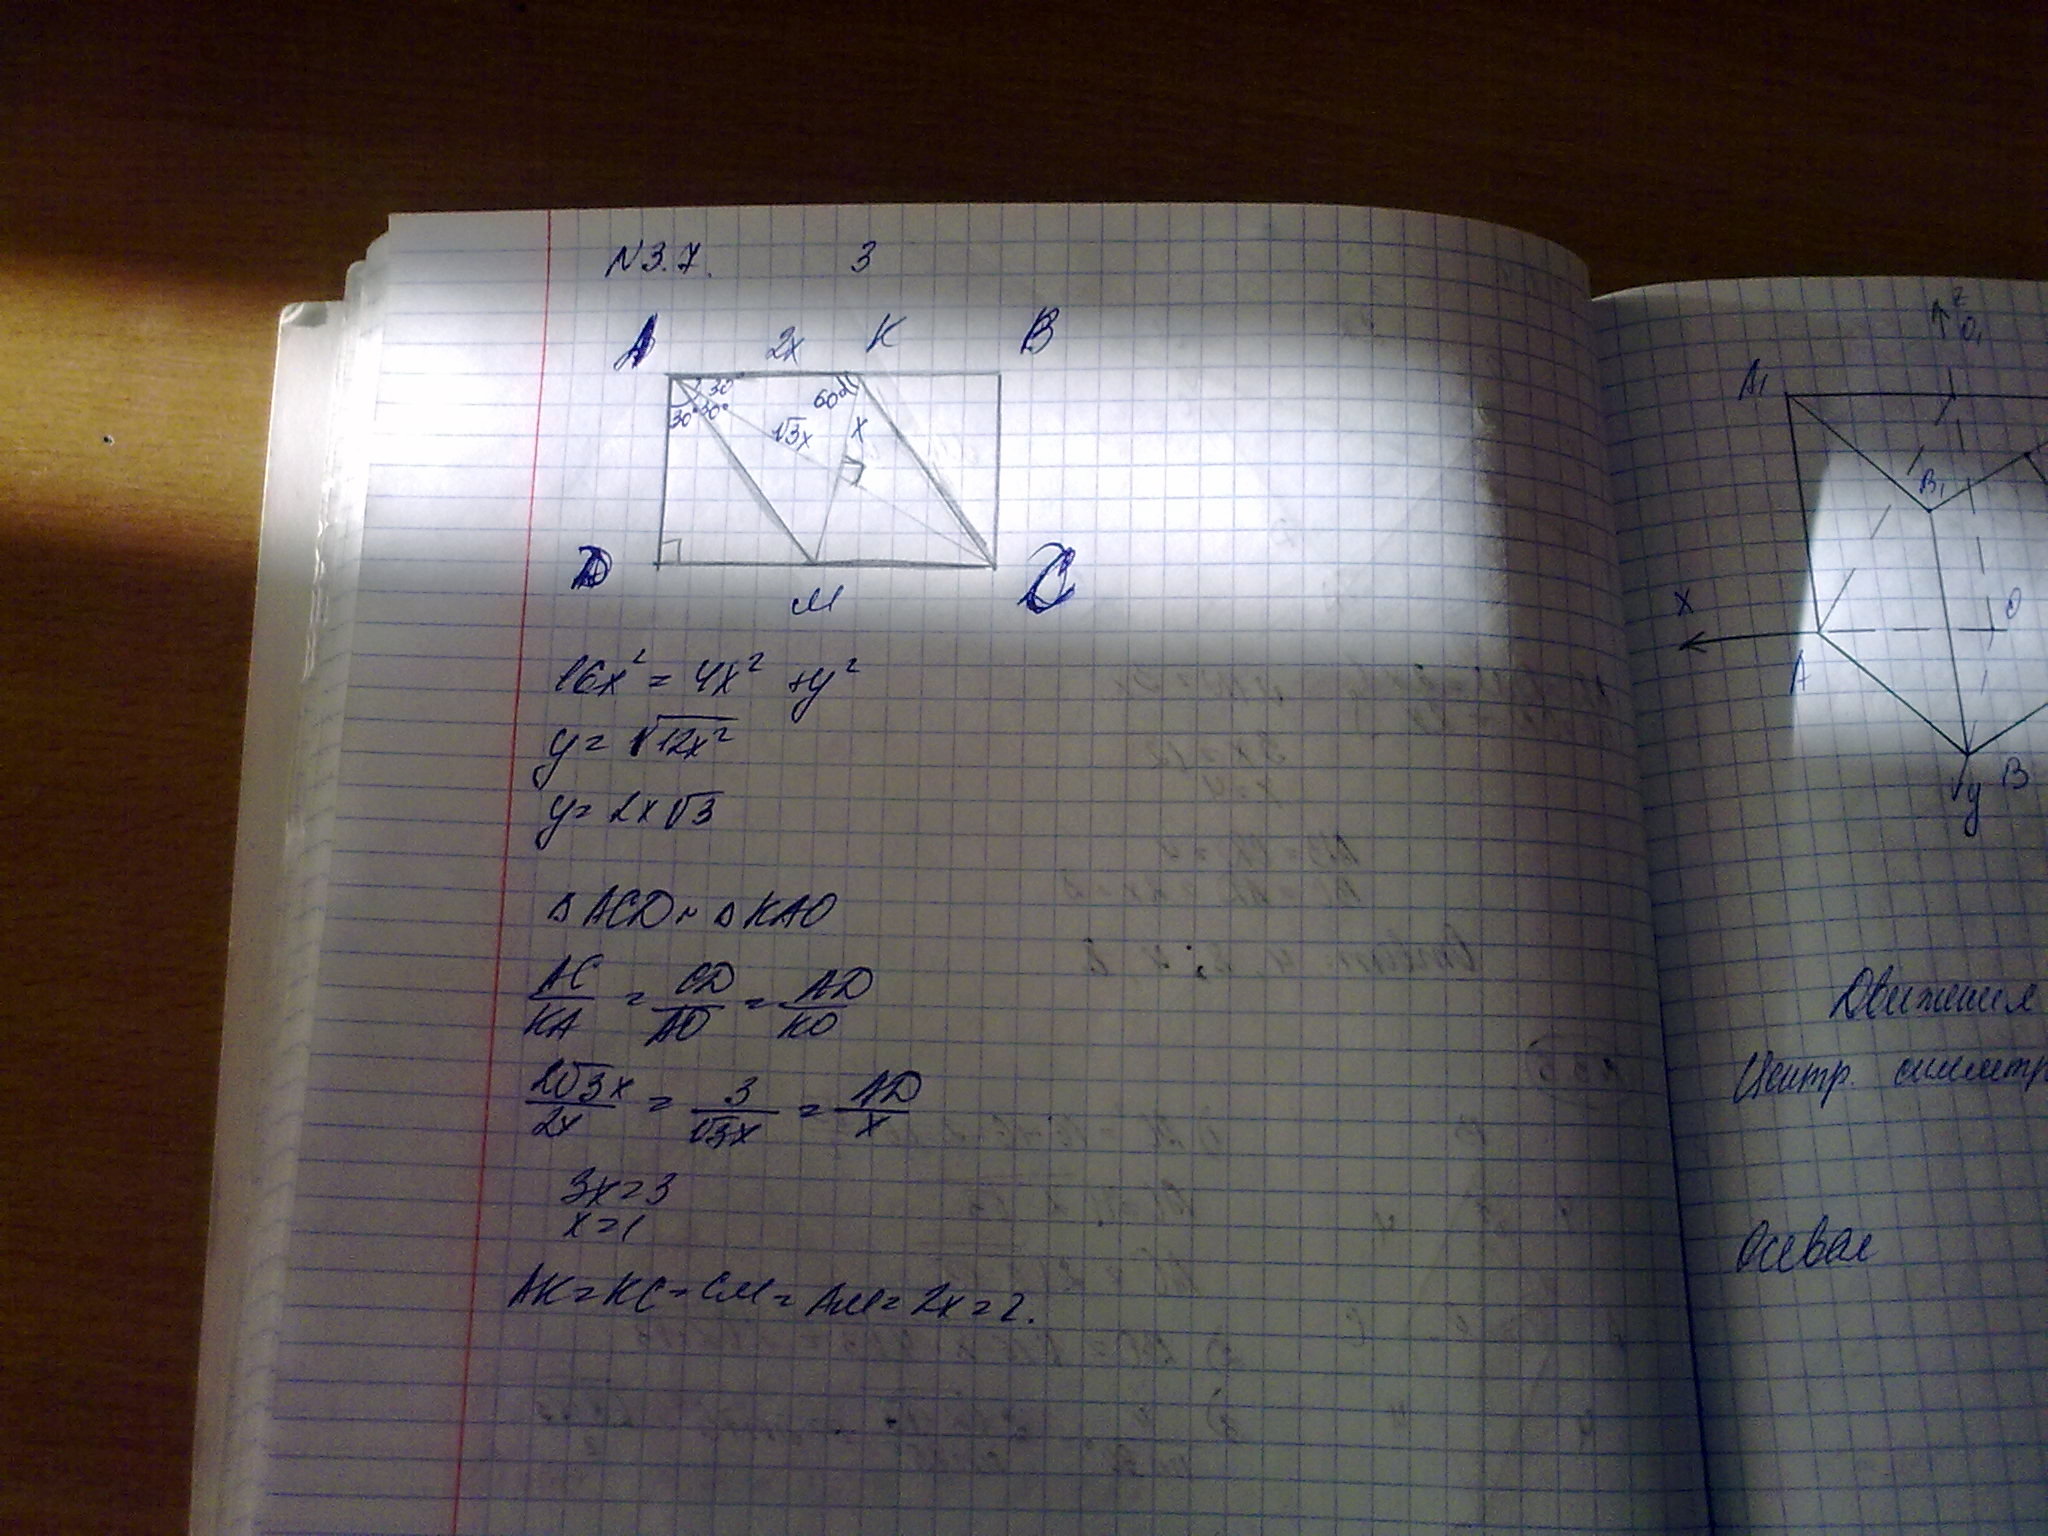 N3.7. 3
A 2x K B
30° 60°
30° 30° √3x x
D M C
16x² = 4x² + y²
y = √12x²
y = 2x√3
Δ ACD ~ Δ KAO
AC/KA = CD/AO = AD/KO
2√3x/2x = 3/√3x = AD/x
3x = 3
x = 1
AK = KC = CM = AM = 2x = 2.
z
O₁
A₁
B₁
x
O
A
B
y
Движения
Центр. симметр
Осевая